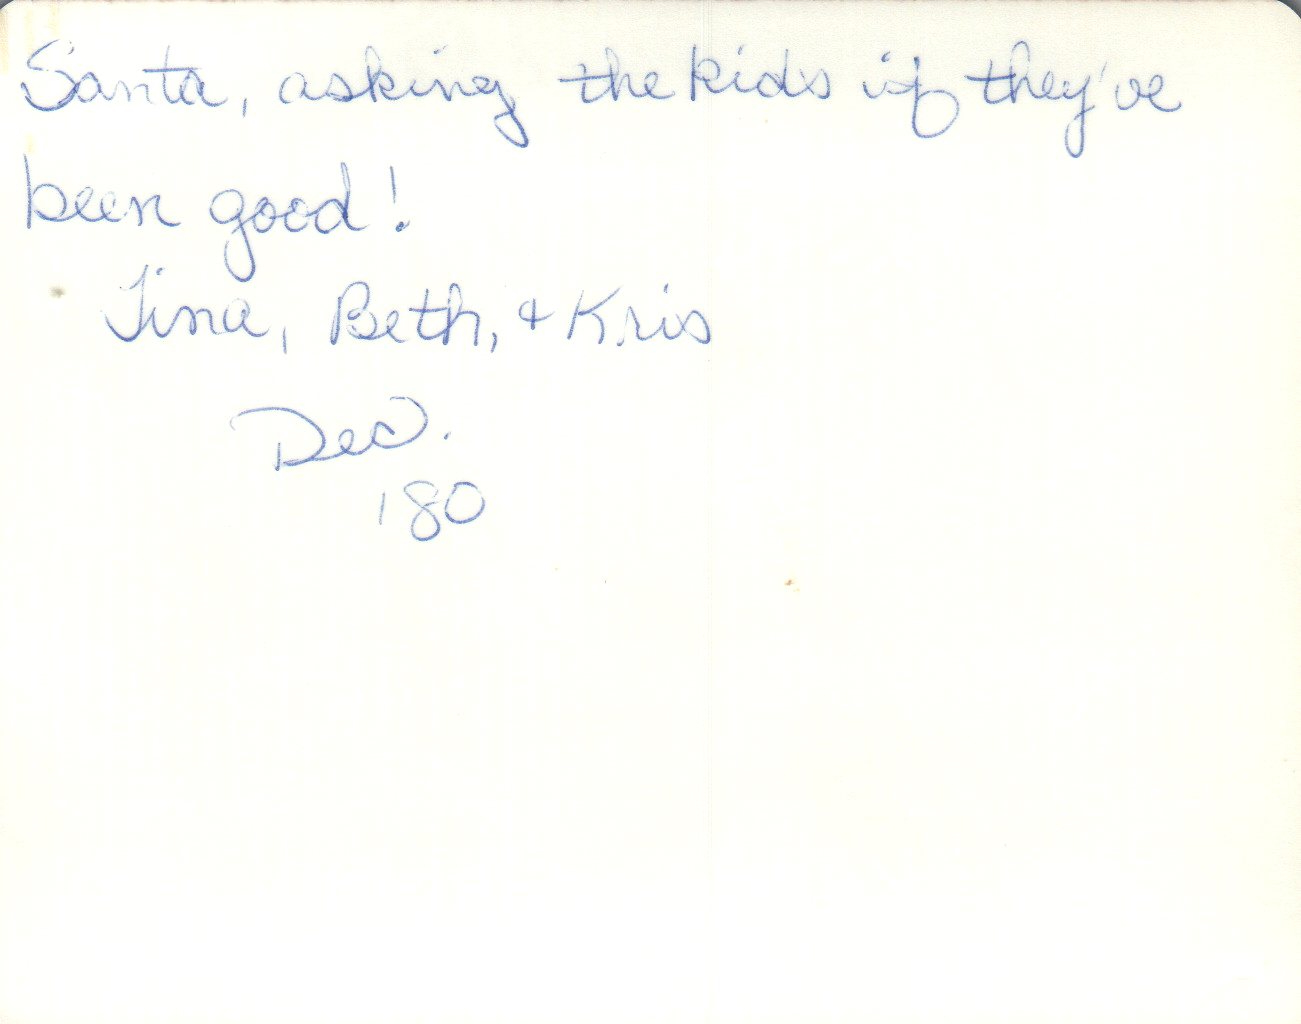 Santa, asking the kids if they've
been good!
Tina, Beth, & Kris
Dec.
'80